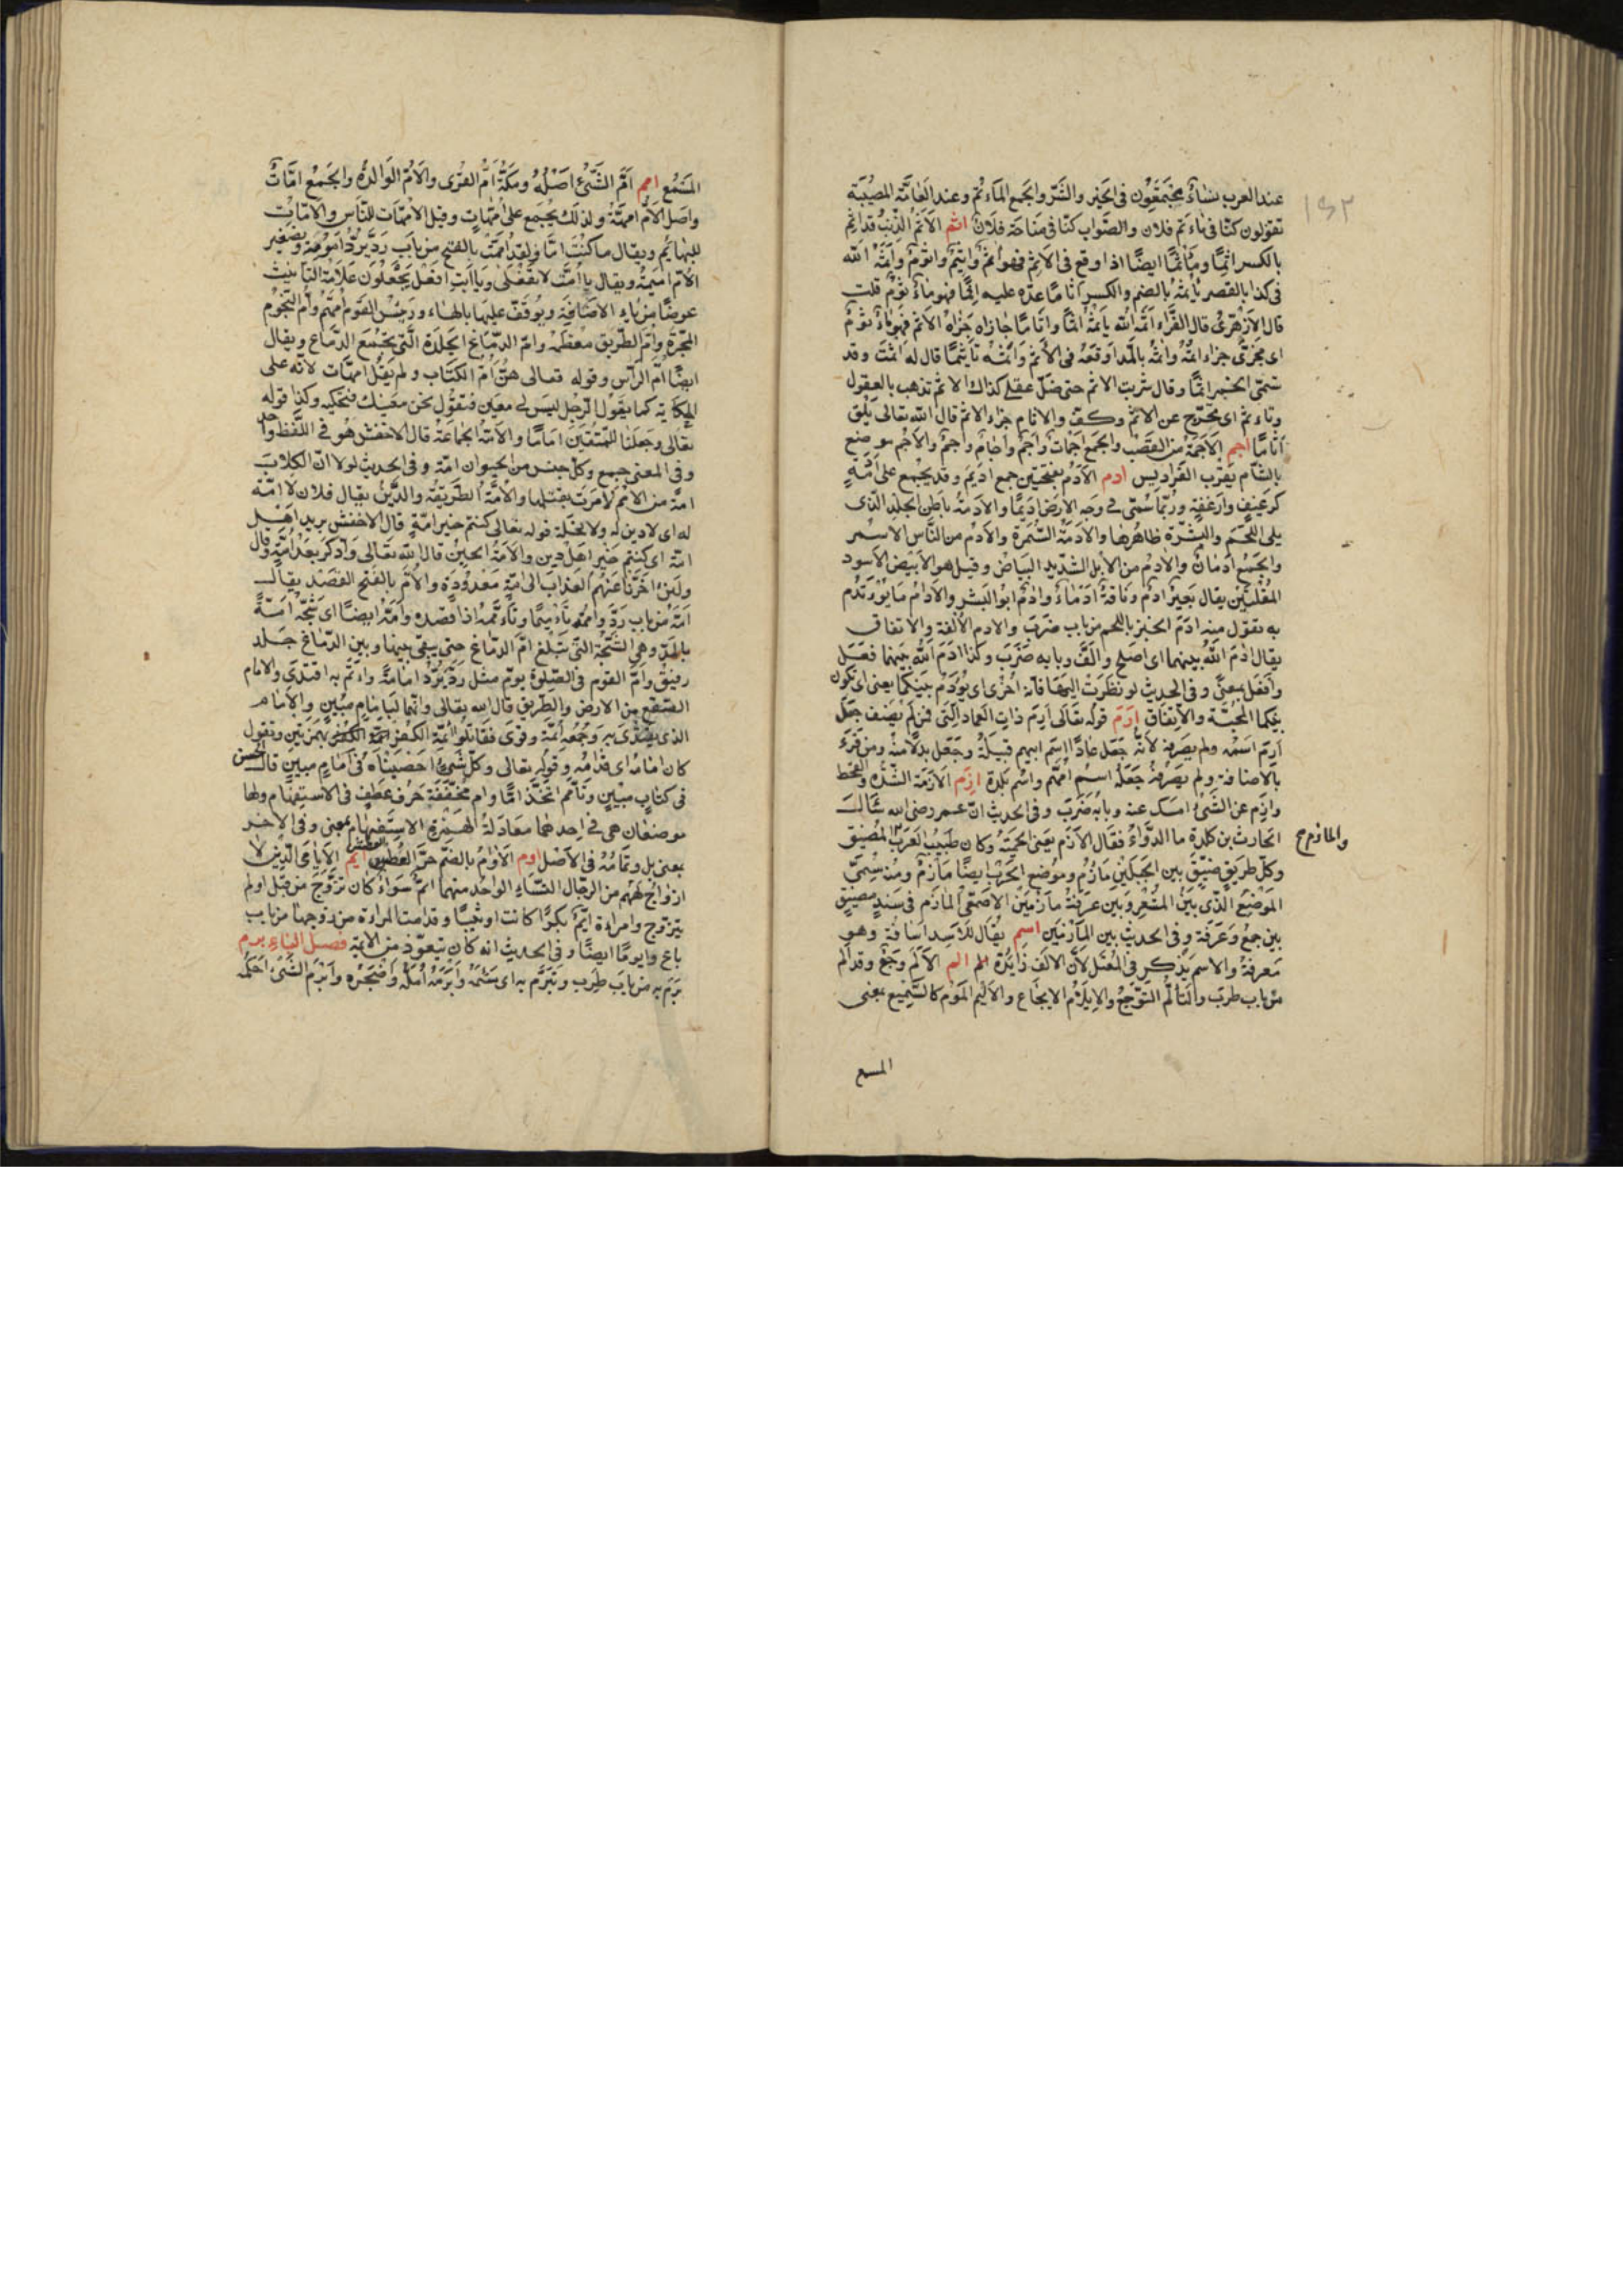 عند العرب نساء يجتمعون في الخير والشر والجمع المآتم وعند العامة المصيبة
تقولون كنا في مأتم فلان والصواب كنا في مناحة فلان اثم الاثم الذنب قد اثم
بالكسر اثما ومأثما ايضا اذا وقع في الاثم فهو آثم واثيم واثوم واثمه الله
في كذا بالقصر يأثمه بالضم والكسر اثاما عده عليه اثما فهو مأثوم قلت
قال الازهري قال الفراء اثمه الله يأثمه اثما واثاما جازاه جزاء الاثم فهو مأثوم
اي مجزي جزاء اثمه وآثمه بالمد اوقعه في الاثم واثمه تأثيما قال له اثمت وقد
تسمى الخمر اثما وقال شربت الاثم حتى ضل عقلي كذاك الاثم تذهب بالعقول
وتأثم اي تحرج عن الاثم وكف والاثام جزاء الاثم قال الله تعالى يلق
اثاما اجم الاجمة من القصب والجمع اجمات واجم وآجام واجم والاجم موضع
بالشام بقرب الفراديس ادم الادم بفتحتين جمع اديم وقد يجمع على آدمة
كرغيف وارغفة وربما سمي وجه الارض اديما والادمة باطن الجلد الذي
يلي اللحم والبشرة ظاهرها والادمة السمرة والآدم من الناس الاسمر
والجمع ادمان والآدم من الابل الشديد البياض وقيل هو الابيض الاسود
المقلتين يقال بعير آدم وناقة ادماء وآدم ابو البشر والادام ما يؤتدم
به تقول منه ادم الخبز باللحم من باب ضرب والادم الالفة والاتفاق
يقال ادم الله بينهما اي اصلح والف وبابه ضرب وكذا آدم الله بينهما فعل
وافعل بمعنى وفي الحديث لو نظرت اليها فانه احرى ان يؤدم بينكما يعني ان تكون
بينكما المحبة والاتفاق ارم قوله تعالى ارم ذات العماد التي فمن لم يضف جعل
ارم اسمه ولم يصرفه لانه جعل عادا اسم ابيهم قبيلة وجعل بدلا منه ومن قرء
بالاضافة ولم يصرفه جعله اسم امهم واسم بلدة ازم الازمة الشدة والقحط
وازم عن الشيء امسك عنه وبابه ضرب وفي الحديث ان عمر رضي الله سأل
الحارث بن كلدة ما الدواء فقال الازم يعني الحمية وكان طبيب العرب المضيق
والمأزم صح
وكل طريق ضيق بين الجبلين مأزم وموضع الحرب ايضا مأزم ومنه سمي
الموضع الذي بين المشعر وبين عرفة مأزمين الاصمعي المأزم في سند مضيق
بين جمع وعرفة وفي الحديث بين المأزمين اسم يقال للاسد اسامة وهو
معرفة والاسم يذكر في المعتل لان الالف زايدة الم الالم وجع وقد الم
من باب طرب والتألم التوجع والايلام الايجاع والاليم المولم كالسميع بمعنى
المسمع
المسمع امم ام الشيء اصله ومكة ام القرى والام الوالدة والجمع امات
واصل الام امهة ولذلك يجمع على امهات وقيل الامهات للناس والامات
للبهايم ويقال ما كنت اما ولقد اممت بالفتح من باب رد يرد امومة وتصغير
الام اميمة ويقال يا امت لا تفعلي ويا ابت افعل يجعلون علامة التأنيث
عوضا من ياء الاضافة ويوقف عليها بالهاء ورئيس القوم امهم وام النجوم
المجرة وام الطريق معظمه وام الدماغ الجلدة التي تجمع الدماغ ويقال
ايضا ام الرأس وقوله تعالى هن ام الكتاب ولم يقل امهات لانه على
الحكاية كما يقول الرجل ليس لي معين فتقول نحن معينك فتحكيه وكذا قوله
تعالى وجعلنا للمتقين اماما والامة الجماعة قال الاخفش هو في اللفظ واحد
وفي المعنى جمع وكل جنس من الحيوان امة وفي الحديث لولا ان الكلاب
امة من الامم لامرت بقتلها والامة الطريقة والدين يقال فلان لا امة
له اي لا دين له ولا نحلة قوله تعالى كنتم خير امة قال الاخفش يريد اهل
امة اي كنتم خير اهل دين والامة الحين قال الله تعالى وادكر بعد امة وقال
ولئن اخرنا عنهم العذاب الى امة معدودة والام بالفتح القصد يقال
امه من باب رد واممه تأميما وتأممه اذا قصده وامه ايضا اي شجه آمة
بالمد وهي الشجة التي تبلغ ام الدماغ حتى يبقى بينها وبين الدماغ جلد
رقيق وام القوم في الصلوة يوم مثل رد يرد امامة وائتم به اقتدى والامام
الصقع من الارض والطريق قال الله تعالى وانهما لبامام مبين والامام
الذي يقتدى به وجمعه ائمة وقرى فقاتلوا ائمة الكفر بهمزتين وتقول
كان امامه اي قدامه وقوله تعالى وكل شيء احصيناه في امام مبين قال الحسن
في كتاب مبين وتأمم اتخذ اما وام مخففة حرف عطف في الاستفهام ولها
موضعان هي في احدهما معادلة الهمزة الاستفهام بمعنى وفي الاخر
بمعنى بل وتمامه في الاصل اوم الاوام بالضم حر العطش ايم الايامى الذين لا
ازواج لهم من الرجال النساء الواحد منهما ايم سواء كان تزوج من قبل او لم
يتزوج وامراة ايم بكرا كانت او ثيبا وقد آمت المراة من زوجها من باب
باع وايوما ايضا وفي الحديث انه كان يتعوذ من الايمة فصل الباء برم
برم به من باب طرب وتبرم به اي سئمه وابرمه امله واضجره وابرم الشيء احكمه